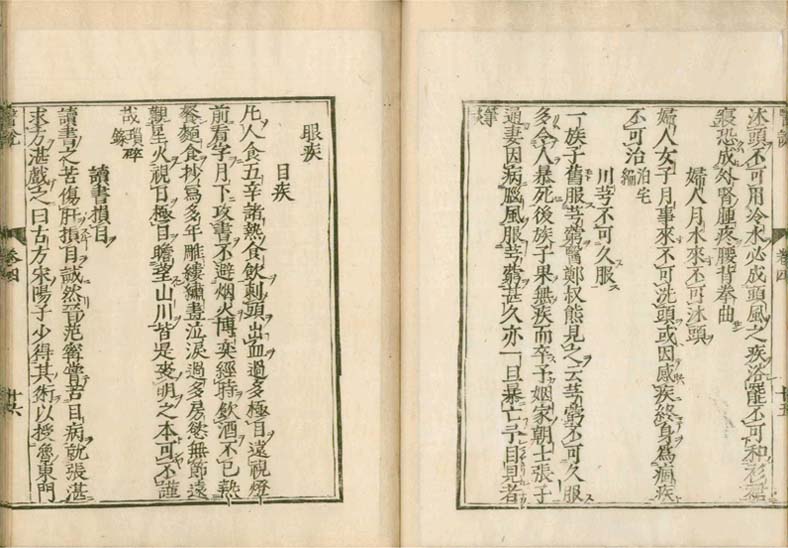 沐頭不可用冷水必成頭風之疾浴罷不可和衫裙
寢恐成外腎腫疼腰背拳曲
婦人月水來不可沐頭
婦人女子月事來不可洗頭或因感疾終身為痼疾
不可治泊宅編
川芎不可久服
一族子舊服芎藭醫鄭叔熊見之云芎藭不可久服
多令人暴死後族子果無疾而卒予姻家朝士張子
通妻因病腦風服芎藭甚久亦一旦暴亡予目見者
筆
眼疾
目疾
凡人食五辛諸熱食飲刺頭出血過多極目遠視燈
前看字月下攻書不避烟火博奕經時飲酒不已熱
餐麵食抄寫多年雕縷繡畫泣淚過多房慾無節遠
觀星火視日極目瞻望山川皆是喪明之本可不謹
哉瑣碎錄
讀書損目
讀書之苦傷肝損目誠然晉范甯嘗苦目病就張湛
求方湛戲之曰古方宋陽子少得其術以授魯東門
卷四
十五
卷四
十六